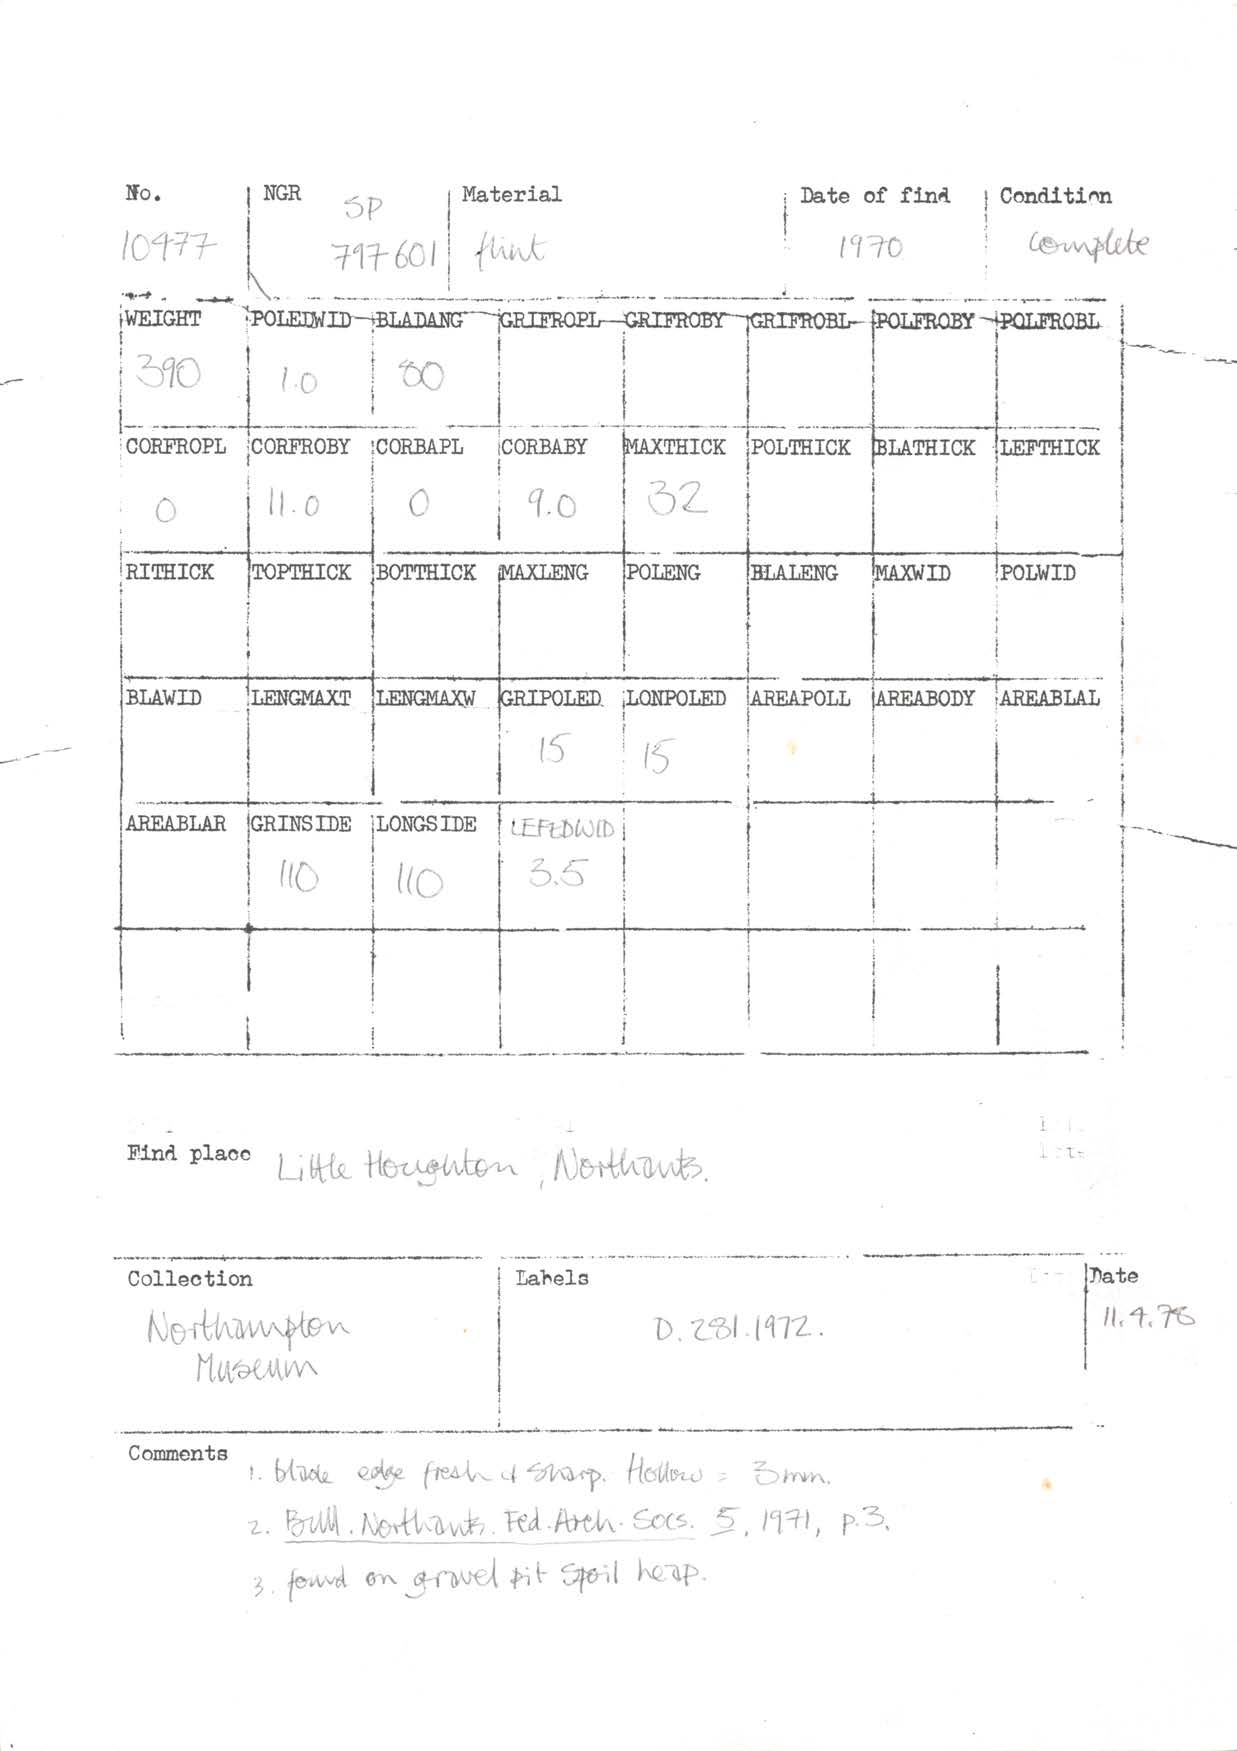 No. NGR SP Material Date of find Condition
10477 797601 flint 1970 complete
WEIGHT POLEDWID BLADANG GRIFROPL GRIFROBY GRIFROBL POLFROBY POLFROBL
390 1.0 80
CORFROPL CORFROBY CORBAPL CORBABY MAXTHICK POLTHICK BLATHICK LEFTHICK
0 11.0 0 9.0 32
RITHICK TOPTHICK BOTTHICK MAXLENG POLENG BLALENG MAXWID POLWID
BLAWID LENGMAXT LENGMAXW GRIPOLED LONPOLED AREAPOLL AREABODY AREABLAL
15 15
AREABLAR GRINSIDE LONGSIDE LEFEDWID
110 110 3.5
Find place Little Houghton, Northants.
Collection Labels Date
Northampton D.281.1972. 11.4.78
Museum
Comments 1. blade edge fresh & sharp. Hollow = 3mm.
2. Bull. Northants. Fed. Arch. Socs. 5, 1971, p.3.
3. found on gravel pit spoil heap.